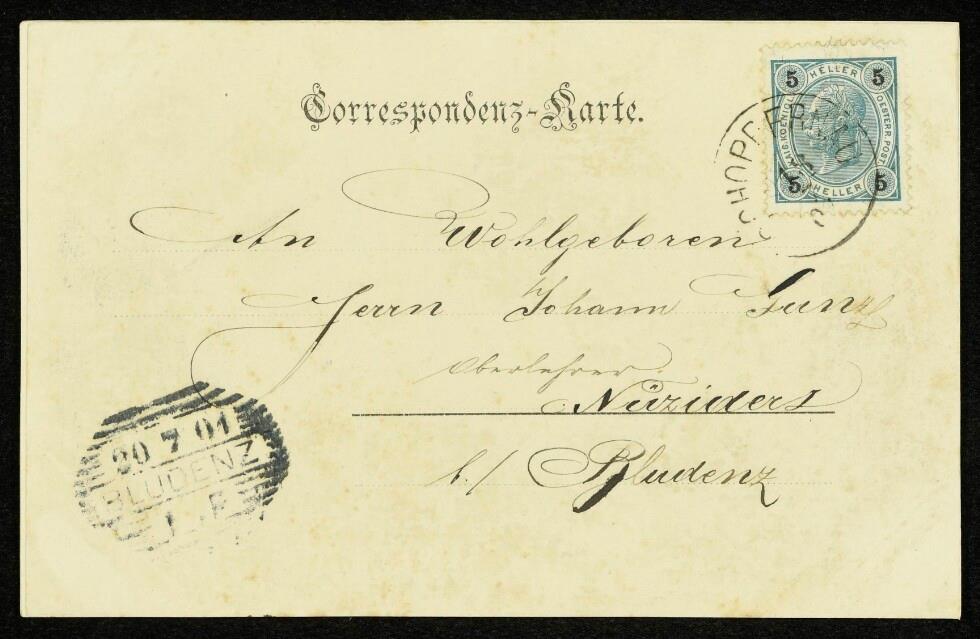 Correspondenz-Karte.
5 HELLER 5
KAIS. KOENIGL. OESTERR. POST
5 HELLER 5
SCHOPPERNAU
An Wohlgeboren
Herrn Johann
Oberlehrer
Nüziders
b./ Bludenz
20 7 01
BLUDENZ